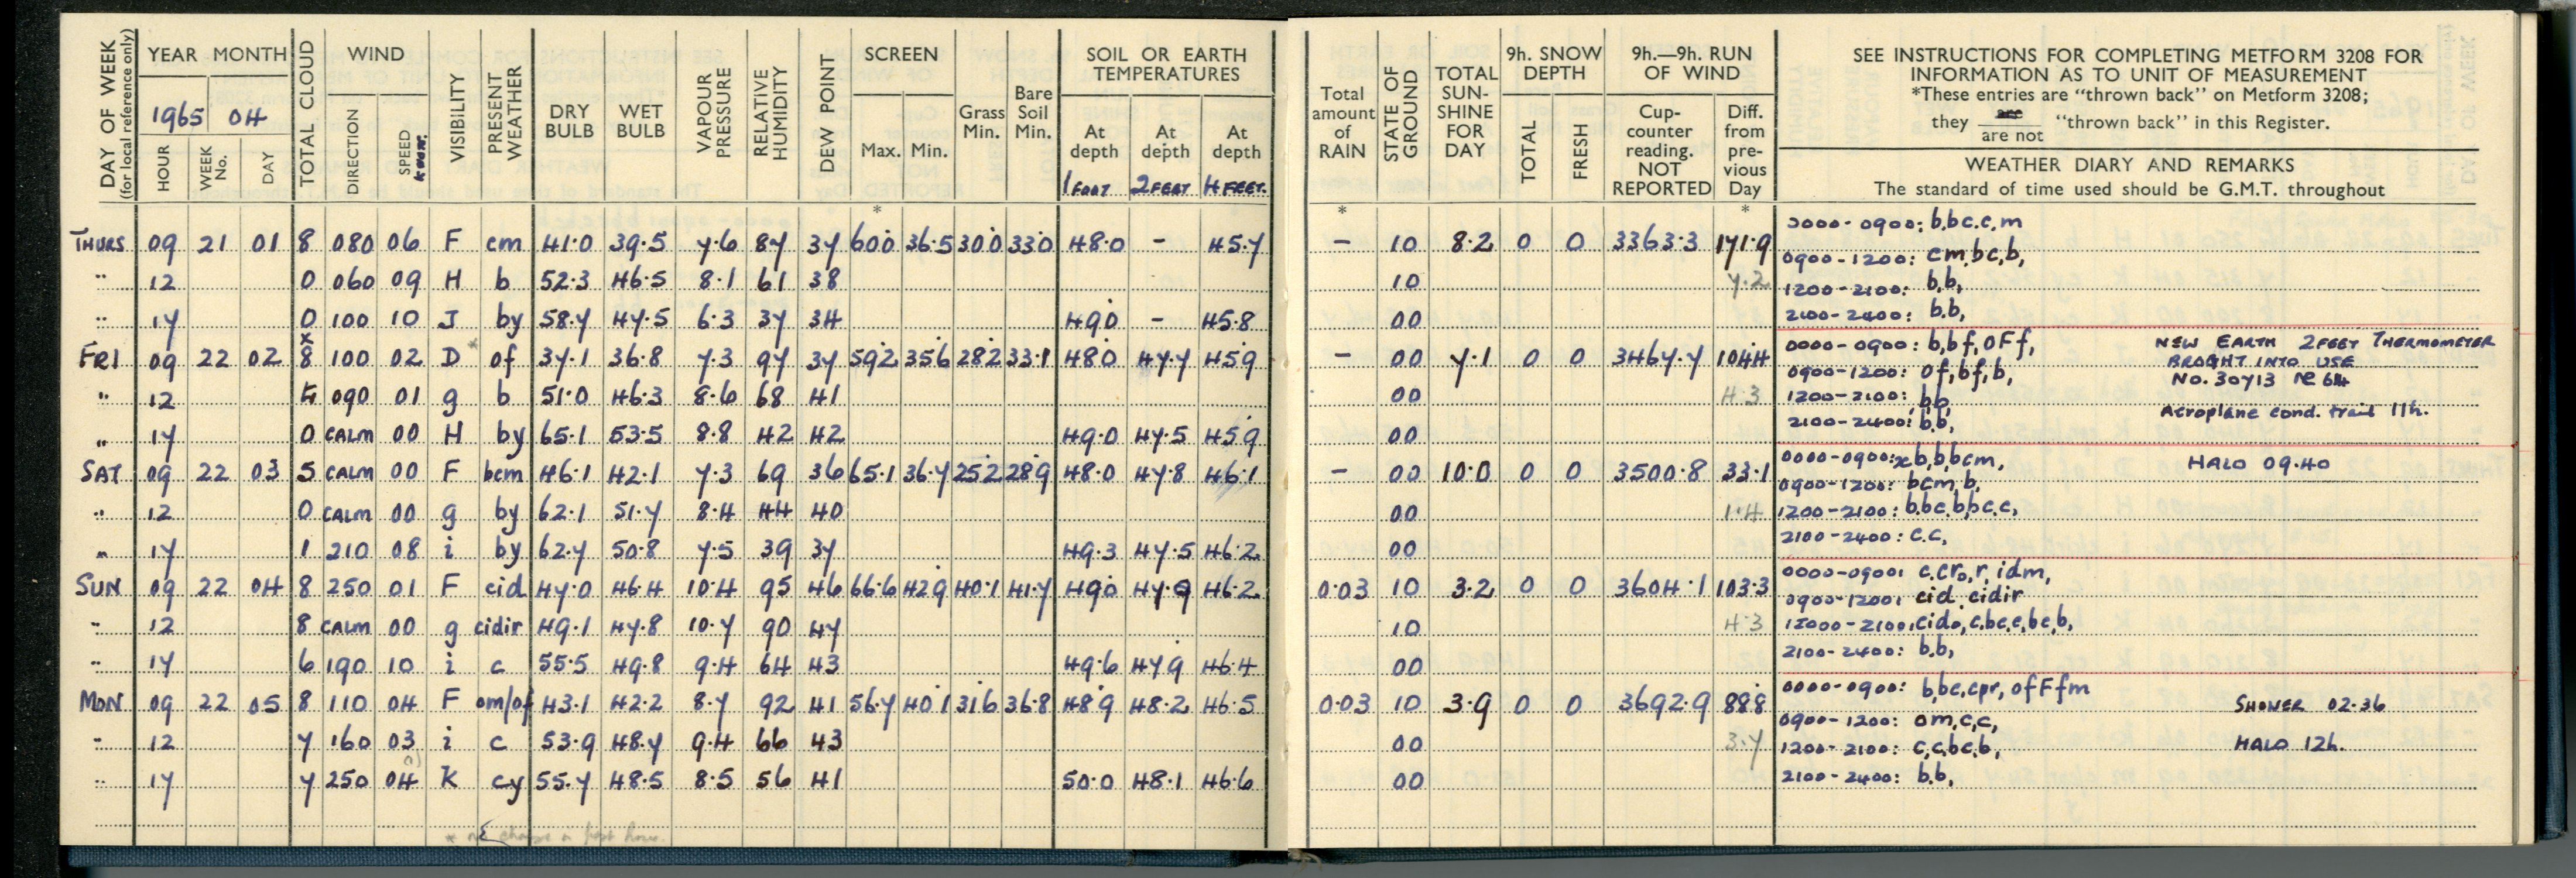 DAY OF WEEK (for local reference only) YEAR MONTH TOTAL CLOUD WIND VISIBILITY PRESENT WEATHER DRY BULB WET BULB VAPOUR PRESSURE RELATIVE HUMIDITY DEW POINT SCREEN Grass Min. Bare Soil Min. SOIL OR EARTH TEMPERATURES Total amount of RAIN STATE OF GROUND TOTAL SUN-SHINE FOR DAY 9h. SNOW DEPTH 9h.—9h. RUN OF WIND SEE INSTRUCTIONS FOR COMPLETING METFORM 3208 FOR
INFORMATION AS TO UNIT OF MEASUREMENT
*These entries are "thrown back" on Metform 3208;
they are / are not "thrown back" in this Register.
1965 04
HOUR WEEK No. DAY DIRECTION SPEED Max. Min. At depth 1 FOOT At depth 2 FEET At depth 4 FEET TOTAL FRESH Cup-counter reading. NOT REPORTED Diff. from pre-vious Day
WEATHER DIARY AND REMARKS
The standard of time used should be G.M.T. throughout
* * *
THURS 09 21 01 8 080 06 F cm 41.0 39.5 7.6 87 37 60.0 36.5 30.0 33.0 48.0 - 45.7 - 10 8.2 0 0 3363.3 171.9 0000-0900: b,bc.c,m
0900-1200: cm,bc,b,
" 12 0 060 09 H b 52.3 46.5 8.1 61 38 10 7.2 1200-2100: b,b,
" 17 0 100 10 J by 58.7 47.5 6.3 37 34 49.0 - 45.8 00 2100-2400: b.b,
FRI 09 22 02 8 100 02 D *of 37.1 36.8 7.3 97 37 59.2 35.6 28.2 33.1 48.0 47.7 45.9 - 00 7.1 0 0 3467.7 104.4 0000-0900: b,bf,oFf, NEW EARTH 2FEET THERMOMETER
BROGHT INTO USE
0900-1200: of,bf,b, No. 30713
" 12 090 01 g b 51.0 46.3 8.6 68 41 00 4.3 1200-2100: b,b,
Aeroplane cond. trail 11h.
" 17 0 CALM 00 H by 65.1 53.5 8.8 42 42 49.0 47.5 45.9 00 2100-2400: b,b,
SAT 09 22 03 5 CALM 00 F bcm 46.1 42.1 7.3 69 36 65.1 36.7 25.2 28.9 48.0 47.8 46.1 - 00 10.0 0 0 3500.8 33.1 0000-0900: xb,b,bcm, HALO 09.40
0900-1200: bcm,b,
" 12 0 CALM 00 g by 62.1 51.7 8.4 44 40 00 1.4 1200-2100: b,bc,b,bc,c,
" 17 1 210 08 i by 62.7 50.8 7.5 39 37 49.3 47.5 46.2 00 2100-2400: c.c,
SUN 09 22 04 8 250 01 F cid 47.0 46.4 10.4 95 46 66.6 42.9 40.1 41.7 49.0 47.9 46.2 0.03 10 3.2 0 0 3604.1 103.3 0000-0900: c.cro,r,idm,
0900-1200: cid,cidir
" 12 8 CALM 00 g cidir 49.1 47.8 10.7 90 47 10 4.3 12000-2100: cido,c,bc,c,bc,b,
" 17 6 190 10 i c 55.5 49.8 9.4 64 43 49.6 47.9 46.4 00 2100-2400: b.b,
MON 09 22 05 8 110 04 F om/of 43.1 42.2 8.7 92 41 56.7 40.1 31.6 36.8 48.9 48.2 46.5 0.03 10 3.9 0 0 3692.9 88.8 0000-0900: b,bc,cpr,ofFfm SHOWER 02.36
0900-1200: om,c,c,
" 12 7 160 03 i c 53.9 48.7 9.4 66 43 00 3.7 1200-2100: c,c,bc,b, HALO 12h.
" 17 7 250 04 K cy 55.7 48.5 8.5 56 41 50.0 48.1 46.6 00 2100-2400: b.b,
* no change in past hour.